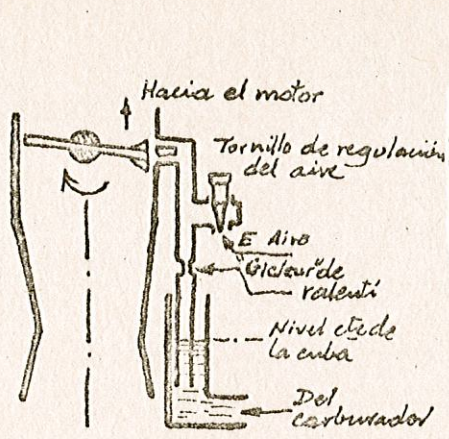 Hacia el motor
Tornillo de regulación
del aire
E Aire
Gicleur de
ralentí
Nivel cte de
la cuba
Del
carburador